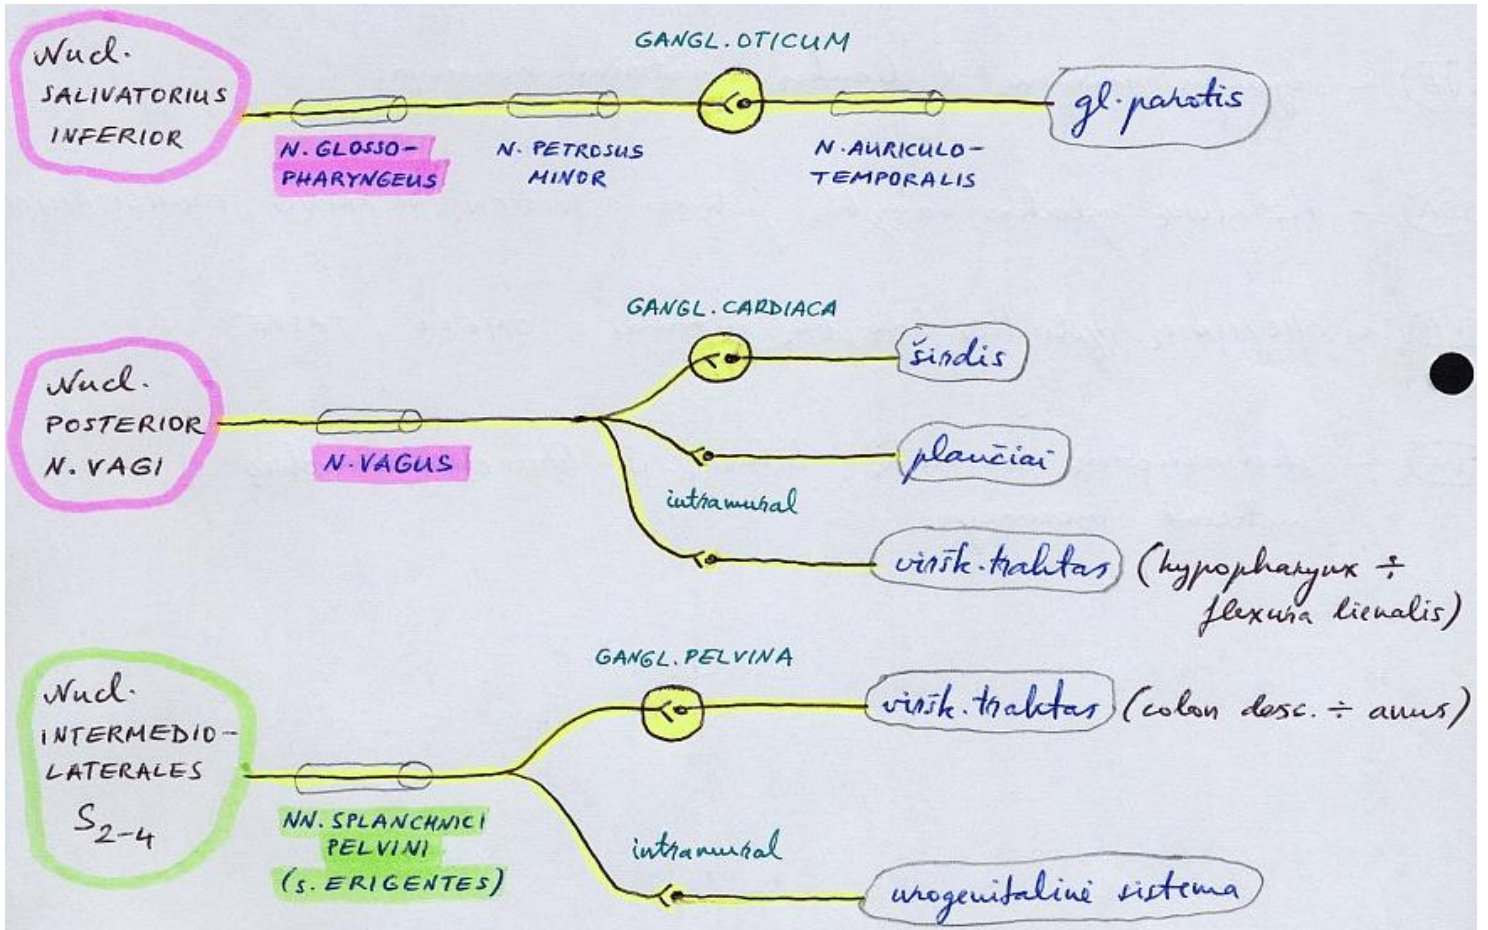 Nucl.
SALIVATORIUS
INFERIOR
N. GLOSSO-
PHARYNGEUS
N. PETROSUS
MINOR
GANGL. OTICUM
N. AURICULO-
TEMPORALIS
gl. parotis
Nucl.
POSTERIOR
N. VAGI
N. VAGUS
GANGL. CARDIACA
širdis
plaučiai
intramural
viršk. traktas (hypopharynx ÷
flexura lienalis)
Nucl.
INTERMEDIO-
LATERALES
S2-4
NN. SPLANCHNICI
PELVINI
(s. ERIGENTES)
GANGL. PELVINA
viršk. traktas (colon desc. ÷ anus)
intramural
urogenitalinė sistema